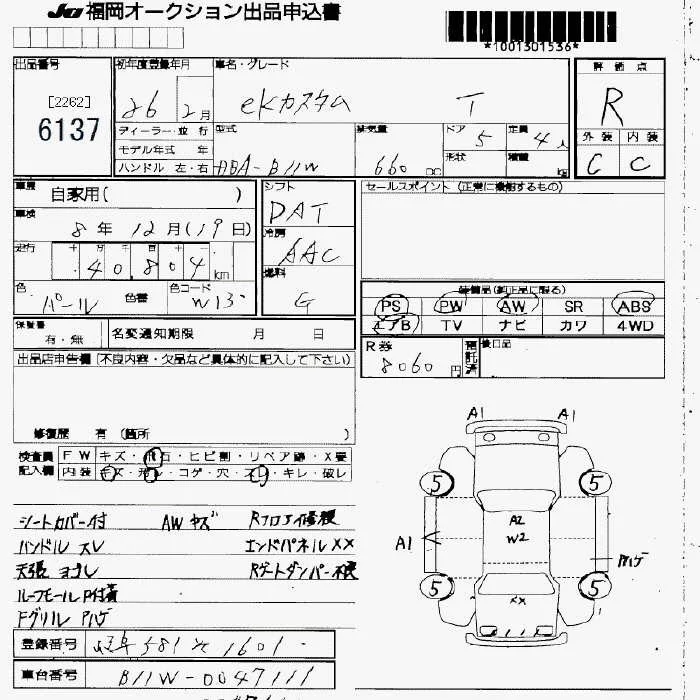 JU 福岡オークション出品申込書
*1001301536*
出品番号
[2262]
6137
初年度登録年月
26 2月
車名・グレード
eKカスタム T
評価点
R
外装 内装
C C
ディーラー・並行
モデル年式 年
ハンドル 左・右
型式
DBA-B11W
排気量
660 CC
ドア 5
形状
定員 4人
積載 kg
車歴
自家用( )
車検
8年 12月(19日)
走行
十 万 千 百 十 一
40,804 km
色
パール
色替
色コード
W13
シフト
DAT
冷房
AAC
燃料
G
セールスポイント (正常に機能するもの)
装備品(純正品に限る)
PS PW AW SR ABS
エアB TV ナビ カワ 4WD
保証書
有・無
名変通知期限 月 日
R券
8060円
預託済
後日品
出品店申告欄 (不良内容・欠品など具体的に記入して下さい)
修復歴 有 (箇所 )
検査員記入欄
FW キズ・飛石・ヒビ割・リペア跡・X要
内装 キズ・汚レ・コゲ・穴・スレ・キレ・破レ
シートカバー付 AWキズ Rフロア修複
ハンドルスレ エンドパネルXX
天張ヨゴレ Rゲートダンパー不良
ルーフモールP付着
FグリルPハゲ
登録番号
岐阜581 そ 1601
車台番号
B11W-0047111
A1 A1
5 5
A2
W2
A1
Pハゲ
5 5
XX